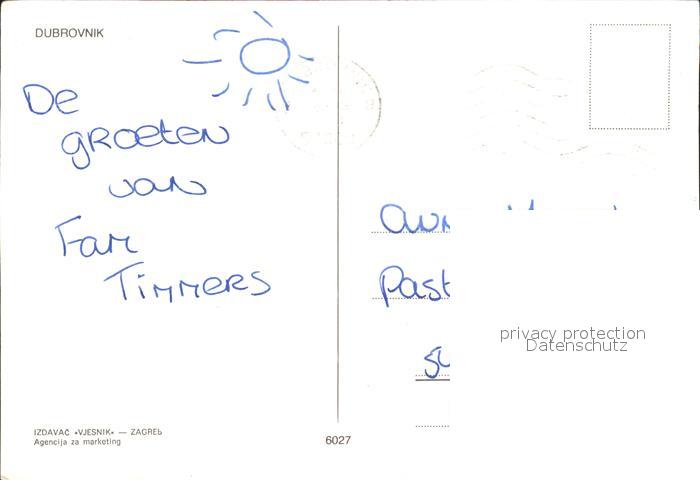 DUBROVNIK
De
groeten
van
Fam
Timmers
privacy protection
Datenschutz
IZDAVAČ «VJESNIK» — ZAGREB
Agencija za marketing
6027